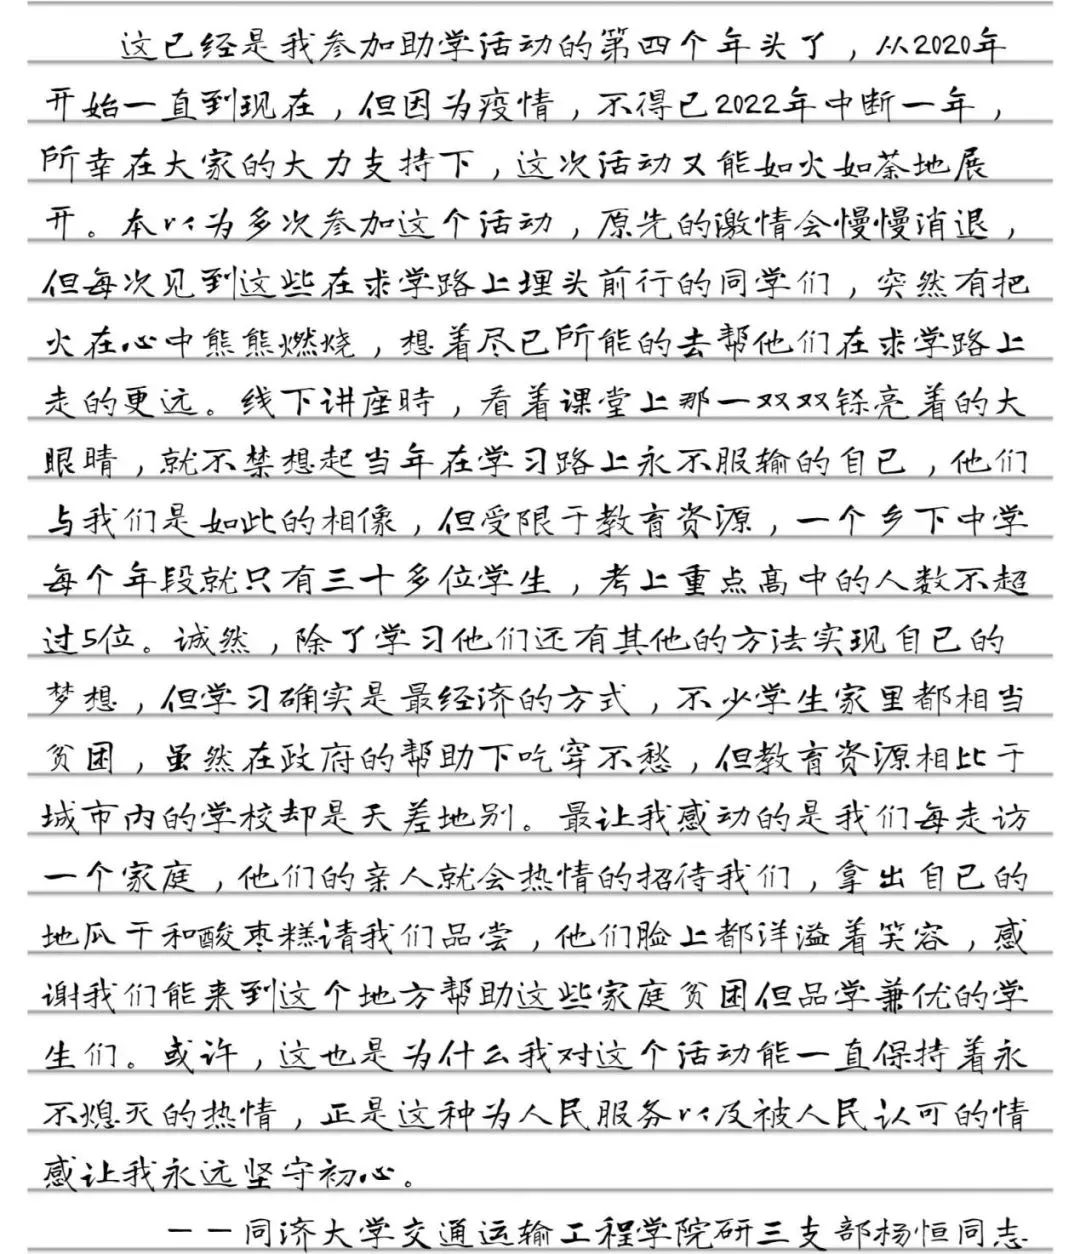 这已经是我参加助学活动的第四个年头了，从2020年
开始一直到现在，但因为疫情，不得已2022年中断一年，
所幸在大家的大力支持下，这次活动又能如火如荼地展
开。本以为多次参加这个活动，原先的激情会慢慢消退，
但每次见到这些在求学路上埋头前行的同学们，突然有把
火在心中熊熊燃烧，想着尽己所能的去帮他们在求学路上
走的更远。线下讲座时，看着课堂上那一双双铩亮着的大
眼睛，就不禁想起当年在学习路上永不服输的自己，他们
与我们是如此的相像，但受限于教育资源，一个乡下中学
每个年段就只有三十多位学生，考上重点高中的人数不超
过5位。诚然，除了学习他们还有其他的方法实现自己的
梦想，但学习确实是最经济的方式，不少学生家里都相当
贫困，虽然在政府的帮助下吃穿不愁，但教育资源相比于
城市内的学校却是天差地别。最让我感动的是我们每走访
一个家庭，他们的亲人就会热情的招待我们，拿出自己的
地瓜干和酸枣糕请我们品尝，他们脸上都洋溢着笑容，感
谢我们能来到这个地方帮助这些家庭贫困但品学兼优的学
生们。或许，这也是为什么我对这个活动能一直保持着永
不熄灭的热情，正是这种为人民服务以及被人民认可的情
感让我永远坚守初心。
——同济大学交通运输工程学院研三支部杨恒同志